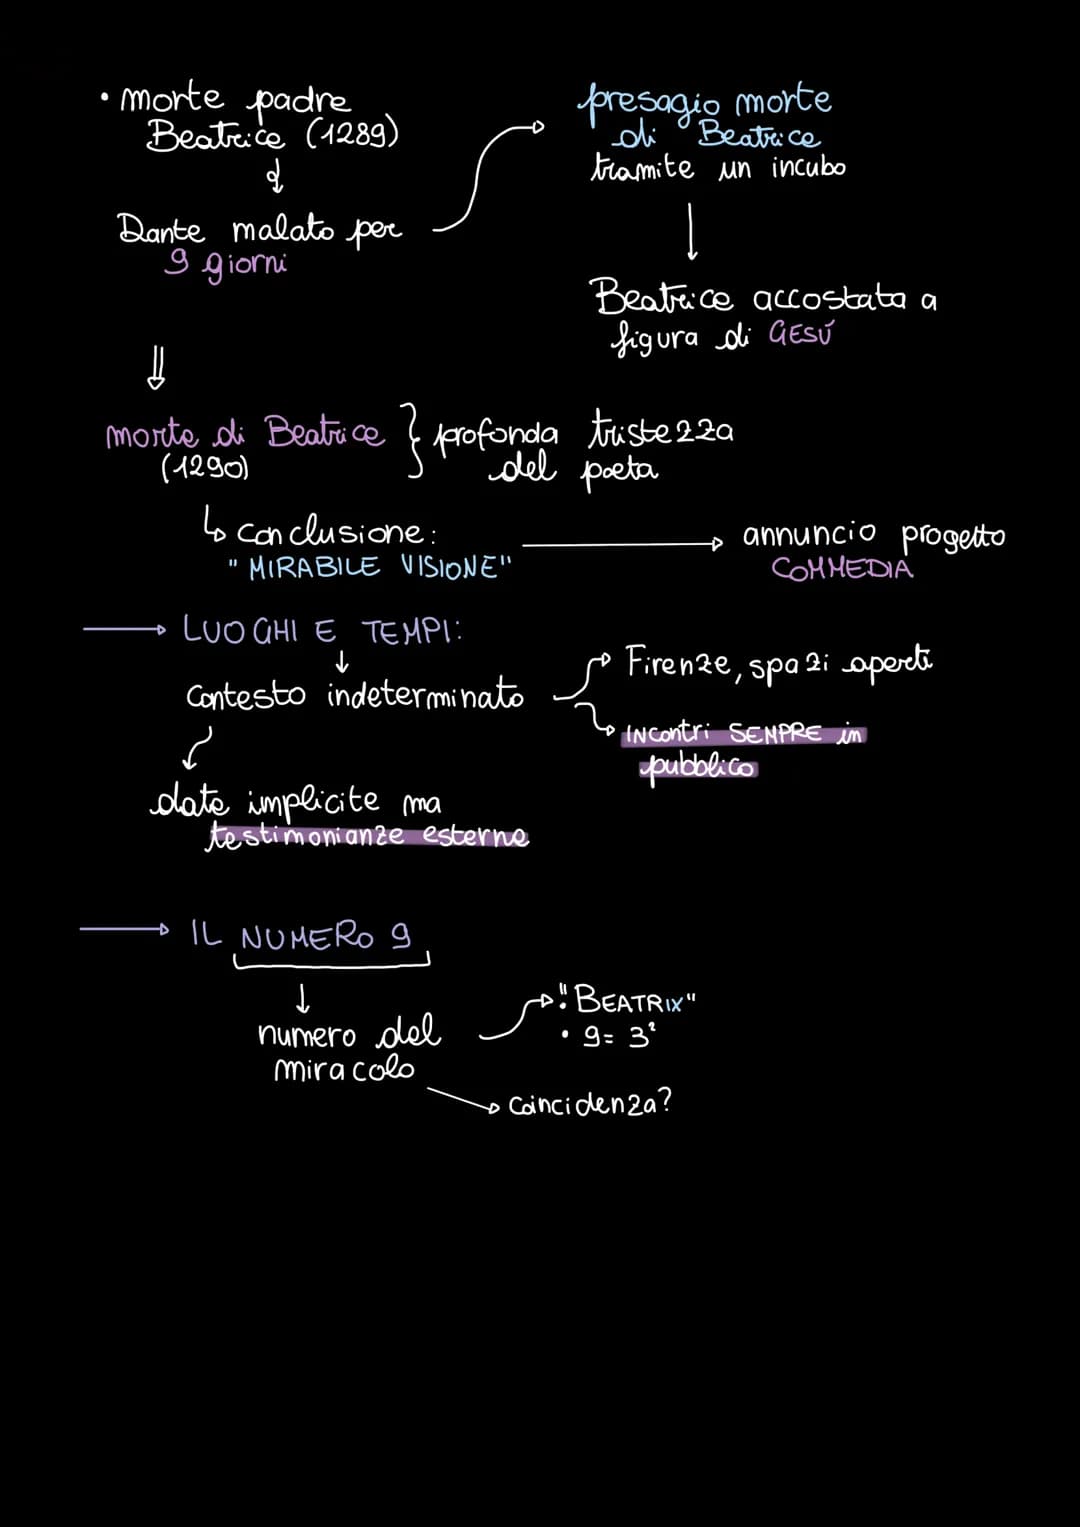 • morte padre
Beatrice (1289)
Dante malato per
9 giorni
presagio morte
di Beatrice
tramite un incubo
Beatrice accostata a
figura di GESÚ
morte di Beatrice
(1290)
profonda tristezza
del poeta
conclusione:
"MIRABILE VISIONE"
annuncio progetto
COMMEDIA
LUOGHI E TEMPI:
contesto indeterminato
Firenze, spazi aperti
INcontri SEMPRE in
pubblico
date implicite ma
testimonianze esterne
IL NUMERO 9
numero del
miracolo
• "BEATRIX"
• 9 = 3²
coincidenza?